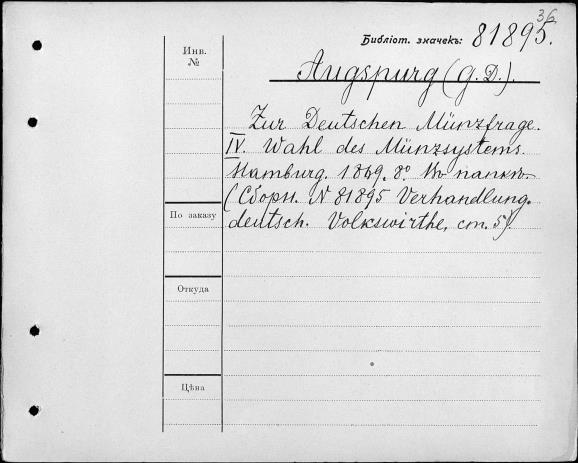 36
Библіот. значекъ: 81895.
Инв.
№
Augspurg (G. D.).
Zur Deutschen Münzfrage.
IV. Wahl des Münzsystems.
Hamburg. 1869. 8º. Въ папкѣ
(Сборн. N 81895 Verhandlung.
deutsch. Volkswirthe, ст. 5).
По заказу
Откуда
Цѣна